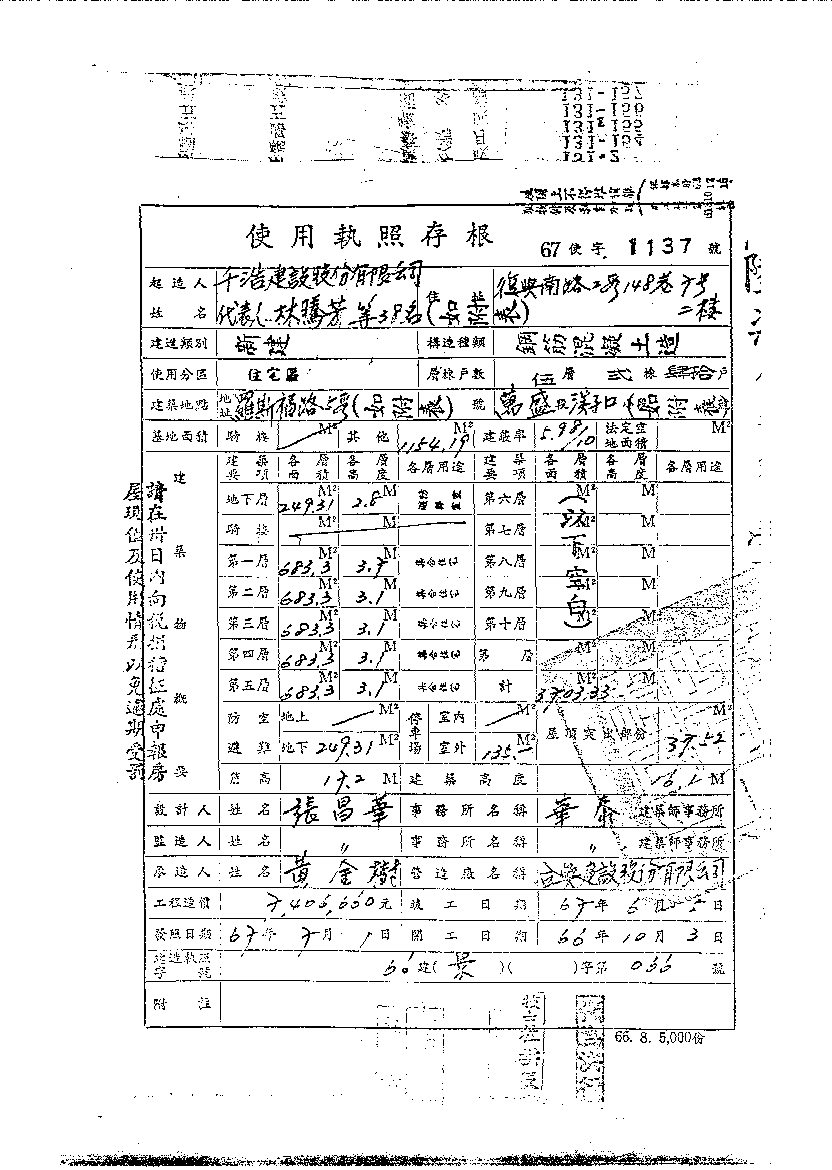 131-157
131-156
131-155
131-154
131-2
使用執照存根
67使字 1137 號
起造人姓名
千浩建設股份有限公司
代表人林騰芳等38名(如附表)
住址
復興南路二段148巷7號
二棟
建造類別 新建 構造種類 鋼筋混凝土造
使用分區 住宅區 層棟戶數 伍層 弍棟 肆拾戶
建築地點 地址 羅斯福路5段(如附表)號 萬盛段溪子口(如附表)
基地面積 騎樓 M² 其他 1154.19 M² 建蔽率 5.98/10 法定空地面積 M²
建築要項 各層面積 各層高度 各層用途 建築要項 各層面積 各層高度 各層用途
建築物概要
地下層 249.31 M² 2.8 M 第六層 M² M
騎樓 M² M 第七層 M² M
第一層 683.3 M² 3.7 M 第八層 M² M
第二層 683.3 M² 3.1 M 第九層 M² M
第三層 683.3 M² 3.1 M 第十層 M² M
第四層 683.3 M² 3.1 M 第 層 M² M
第五層 683.3 M² 3.1 M 計 3703.33
(以下空白)
防空避難 地上 M² 停車場 室內 M² 屋頂突出部份 37.52 M²
地下 249.31 M² 室外 135.- M²
簷高 17.2 M 建築高度 16.1 M
設計人 姓名 張昌華 事務所名稱 華泰 建築師事務所
監造人 姓名 〃 事務所名稱 〃 建築師事務所
承造人 姓名 黃金樹 營造廠名稱 合興建設股份有限公司
工程造價 7,406,660元 竣工日期 67年6月 日
發照日期 67年7月1日 開工日期 66年10月3日
建造執照字號 66建(景)( )字第066號
附註
66. 8. 5,000份
請在卅日內向稅捐稽征處申報房
屋現值及使用情形以免逾期受罰